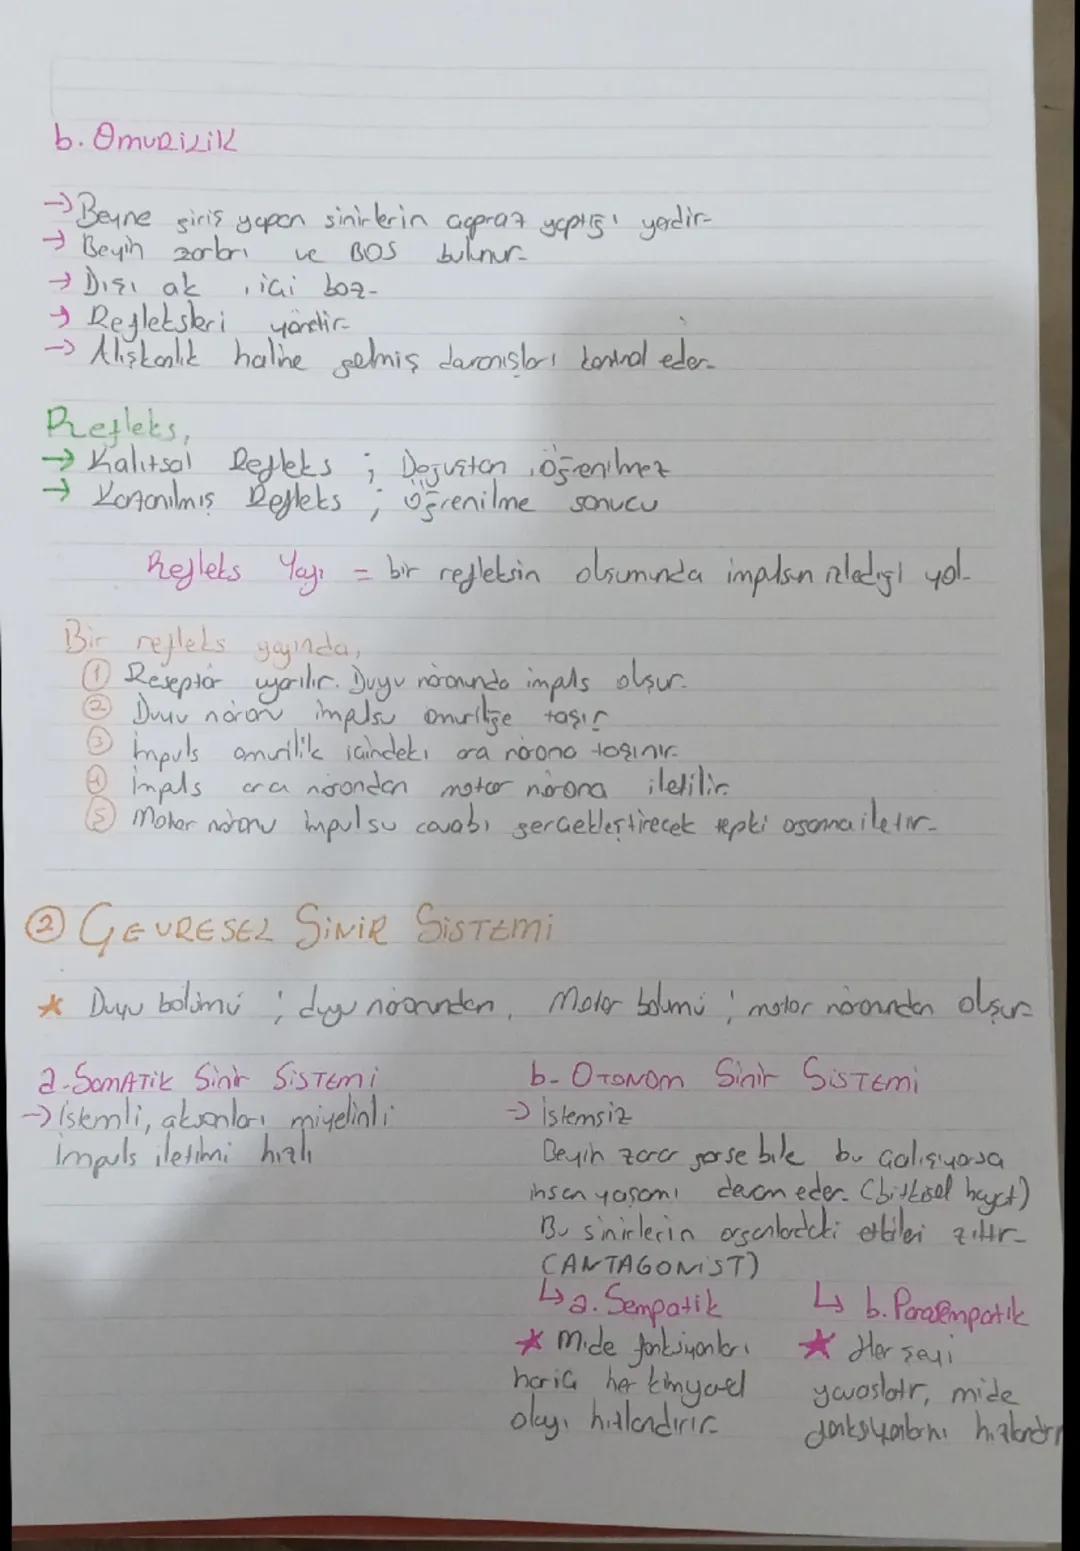 b. Omurilik
→ Beyne giriş yapan sinirlerin çapraz yaptığı yerdir.
→ Beyin zarları ve BOS bulunur.
→ Dışı ak, içi boz.
→ Refleksleri yönetir.
→ Alışkanlık haline gelmiş davranışları kontrol eder.
Refleks,
→ Kalıtsal Refleks ; Doğuştan, öğrenilmez
→ Kazanılmış Refleks ; öğrenilme sonucu
Refleks Yayı = bir refleksin oluşumunda impulsun izlediği yol.
Bir refleks yayında,
① Reseptör uyarılır. Duyu nöronunda impuls oluşur.
② Duyu nöron impulsu omuriliğe taşır
③ İmpuls omurilik içindeki ara nörona taşınır.
④ İmpuls ara nörondan motor nörona iletilir.
⑤ Motor nöronu impulsu cevabı gerçekleştirecek tepki organa iletir.
② ÇEVRESEL SİNİR SİSTEMİ
* Duyu bölümü ; duyu nöronundan, Motor bölümü ; motor nöronundan oluşur.
a. SOMATİK Sinir SİSTEMİ
→ İstemli, aksonları miyelinli
İmpuls iletimi hızlı
b- OTONOM Sinir SİSTEMİ
→ İstemsiz
Beyin zarar görse bile bu çalışıyorsa
insan yaşamı devam eder. (bitkisel hayat)
Bu sinirlerin organlardaki etkileri zıttır.
(ANTAGONİST)
↳ a. Sempatik
* Mide fonksiyonları
hariç her kimyasal
olayı hızlandırır.
↳ b. Parasempatik
* Her şeyi
yavaşlatır, mide
fonksiyonlarını hızlandır